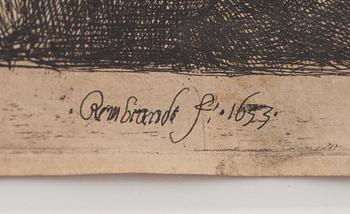 Rembrandt f. 1653.